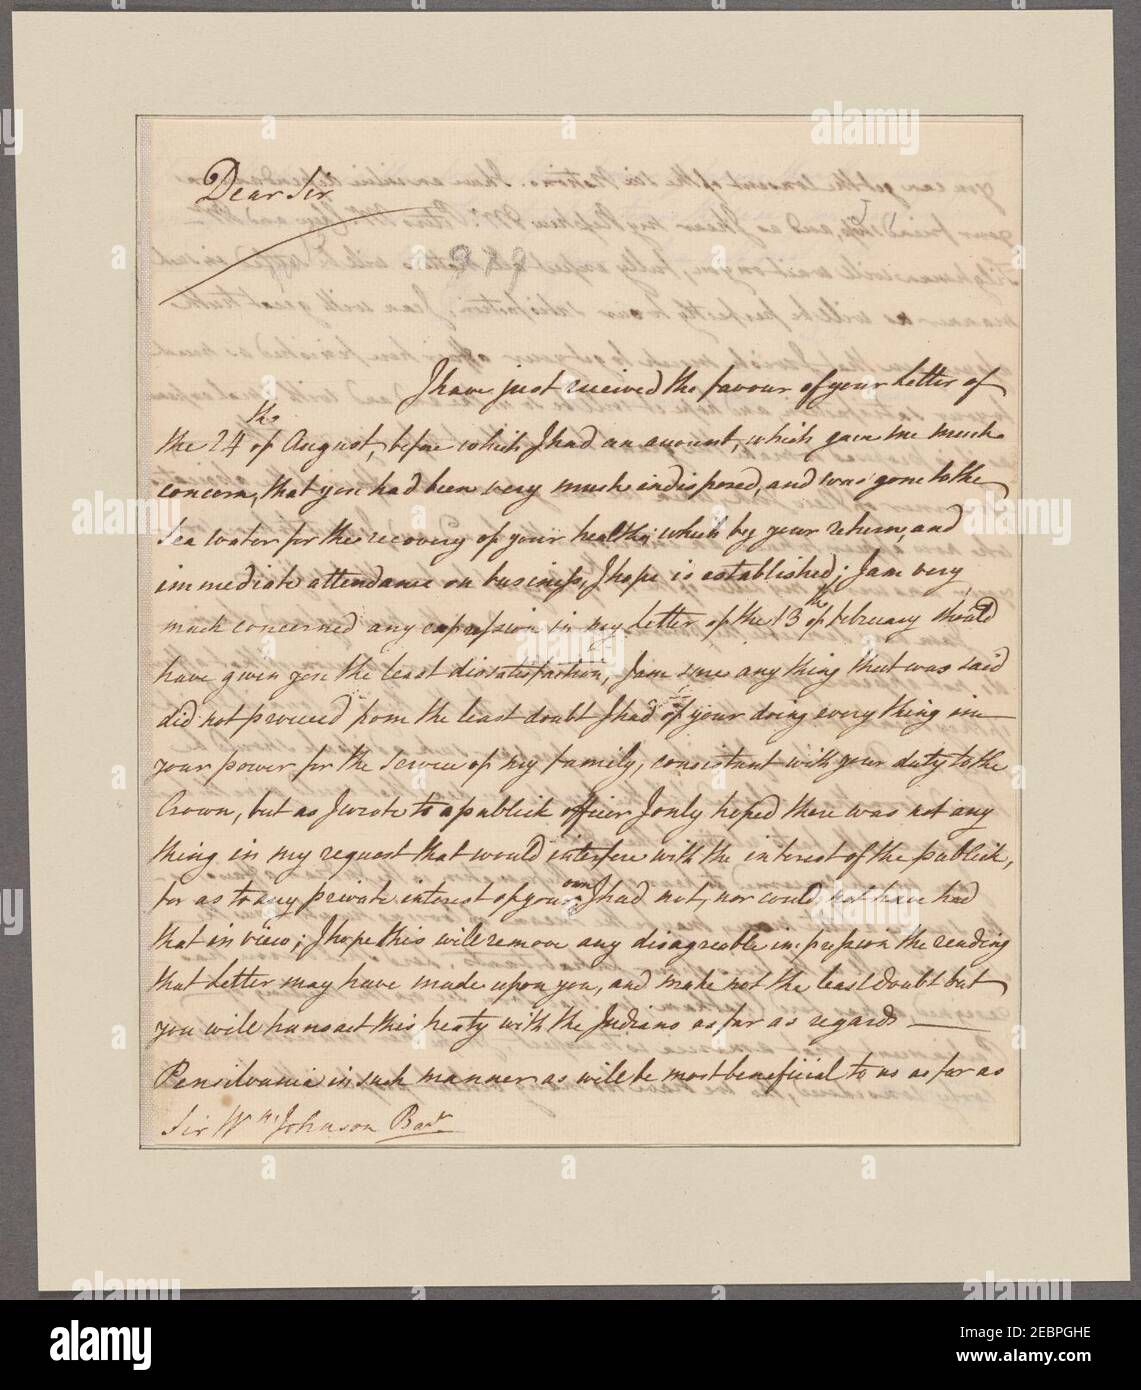 Dear Sir
I have just received the favour of your Letter of
the 24th of August, before which I had an account, which gave me much
concern, that you had been very much indisposed, and was gone to the
Sea Water for the recovery of your health, which by your return, and
immediate attendance on business, I hope is established; I am very
much concerned any expression in my Letter of the 13th of February should
have given you the least dissatisfaction, I am sure any thing that was said
did not proceed from the least doubt I had of your doing every thing in
your power for the Service of my family, consistant with your duty to the
Crown, but as I wrote to a publick officer I only hoped there was not any
thing in my request that would interfere with the interest of the publick,
for as to any private interest of your own I had not, nor could not have had
that in view; I hope this will remove any disagreeable impression the reading
that Letter may have made upon you, and make not the least Doubt but
you will transact this treaty with the Indians as far as regards
Pensilvania in such manner as will be most beneficial to us as far as
Sir Wm. Johnson Bart.
alamy
Image ID: 2EBPGHE
www.alamy.com